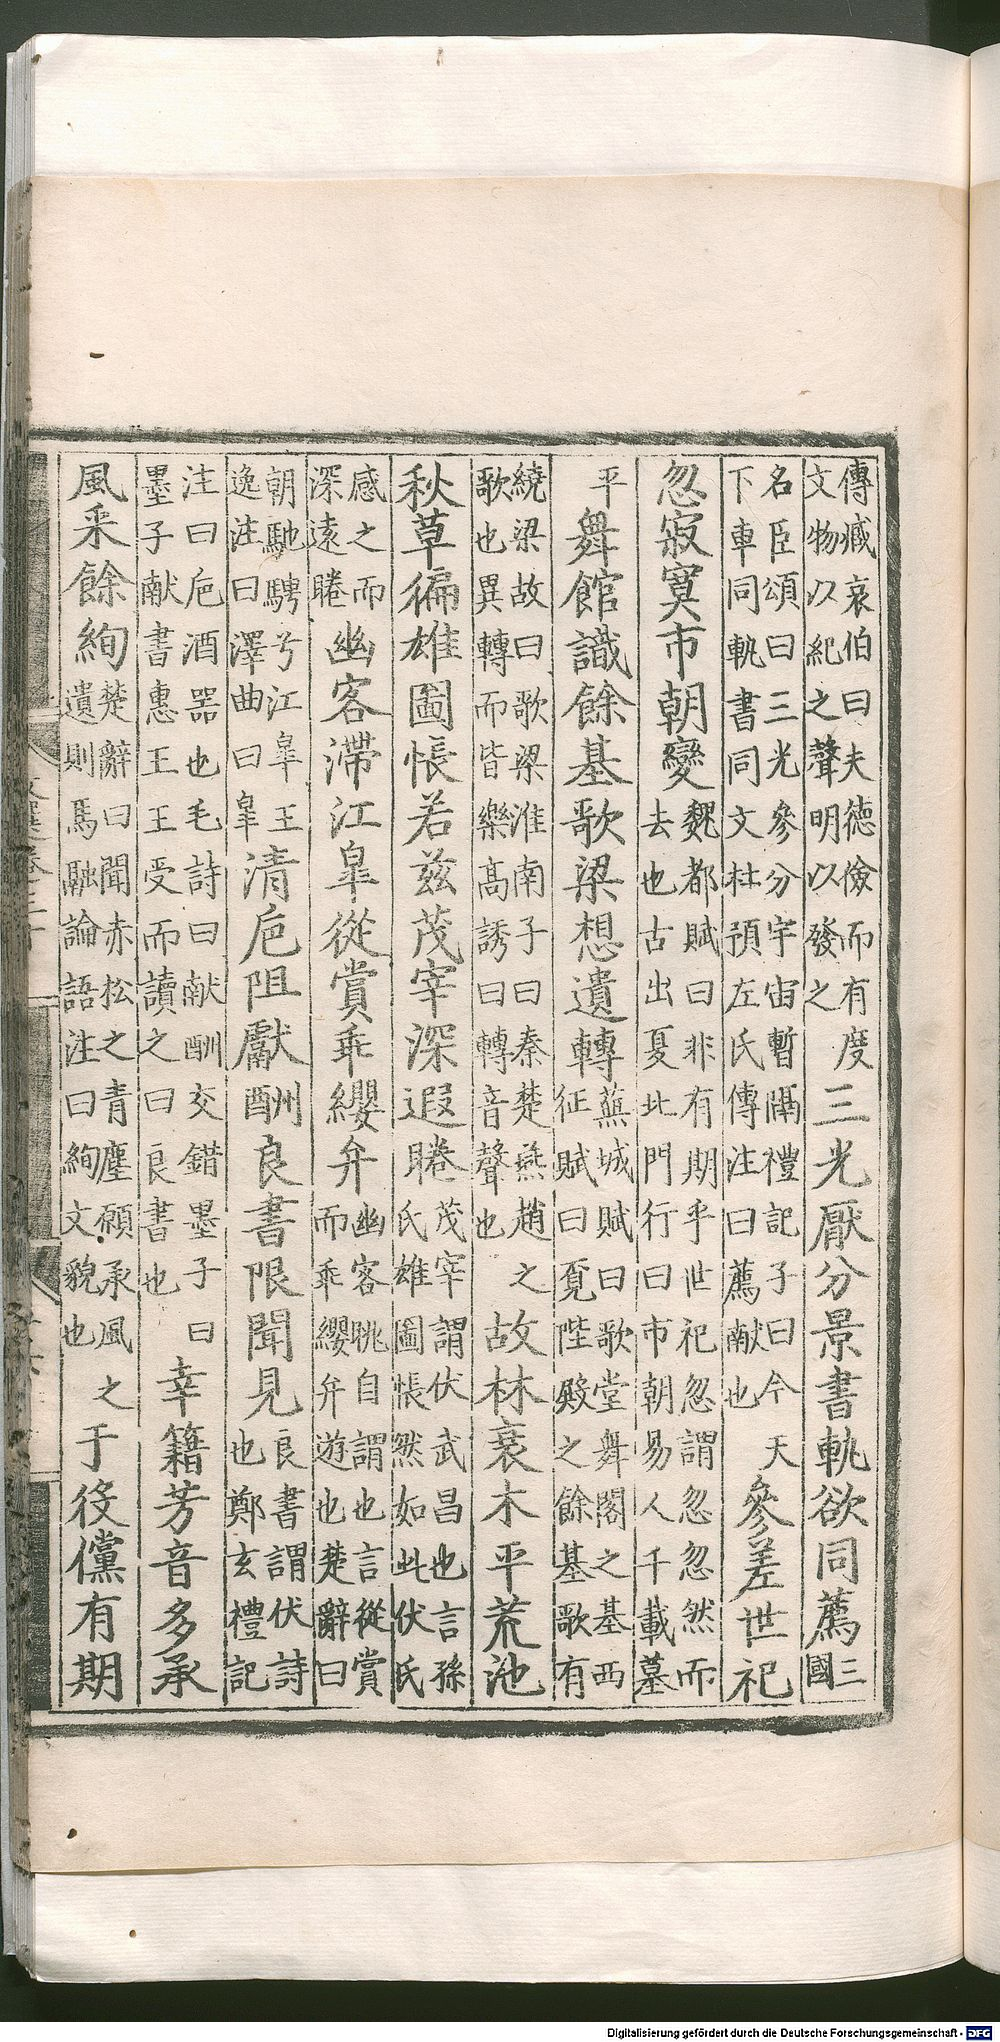 傳臧哀伯曰夫德儉而有度
文物以紀之聲明以發之
三光厭分景書軌欲同薦
三
國
名臣頌曰三光參分宇宙暫隔禮記子曰今天
下車同軌書同文杜預左氏傳注曰薦献也
參差世祀
忽寂寞市朝變
魏都賦曰非有期乎世祀忽謂忽忽然而
去也古出夏北門行曰市朝易人千載墓
平
舞館識餘基歌梁想遺轉
蕪城賦曰歌堂舞閣之基西
征賦曰覔陛殿之餘基歌有
繞梁故曰歌梁淮南子曰秦楚燕趙之
歌也異轉而皆樂高誘曰轉音聲也
故林衰木平荒池
秋草徧雄圖悵若茲茂宰深遐睠
茂宰謂伏武昌也言孫
氏雄圖悵然如此伏氏
感之而
深遠睠
幽客滯江皐從賞乖纓弁
幽客眺自謂也言從賞
而乖纓弁遊也楚辭曰
朝馳騁兮江皐王
逸注曰澤曲曰皐
清巵阻獻酬良書限聞見
良書謂伏詩
也鄭玄禮記
注曰巵酒器也毛詩曰献酬交錯墨子曰
墨子献書惠王王受而讀之曰良書也
幸籍芳音多承
風采餘絢
楚辭曰聞赤松之青塵願承風之
遺則馬融論語注曰絢文貌也
于役儻有期
Digitalisierung gefördert durch die Deutsche Forschungsgemeinschaft - DFG